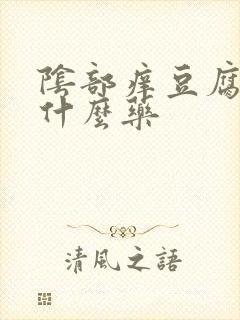 陰部痒豆腐
什麼藥
清風之語